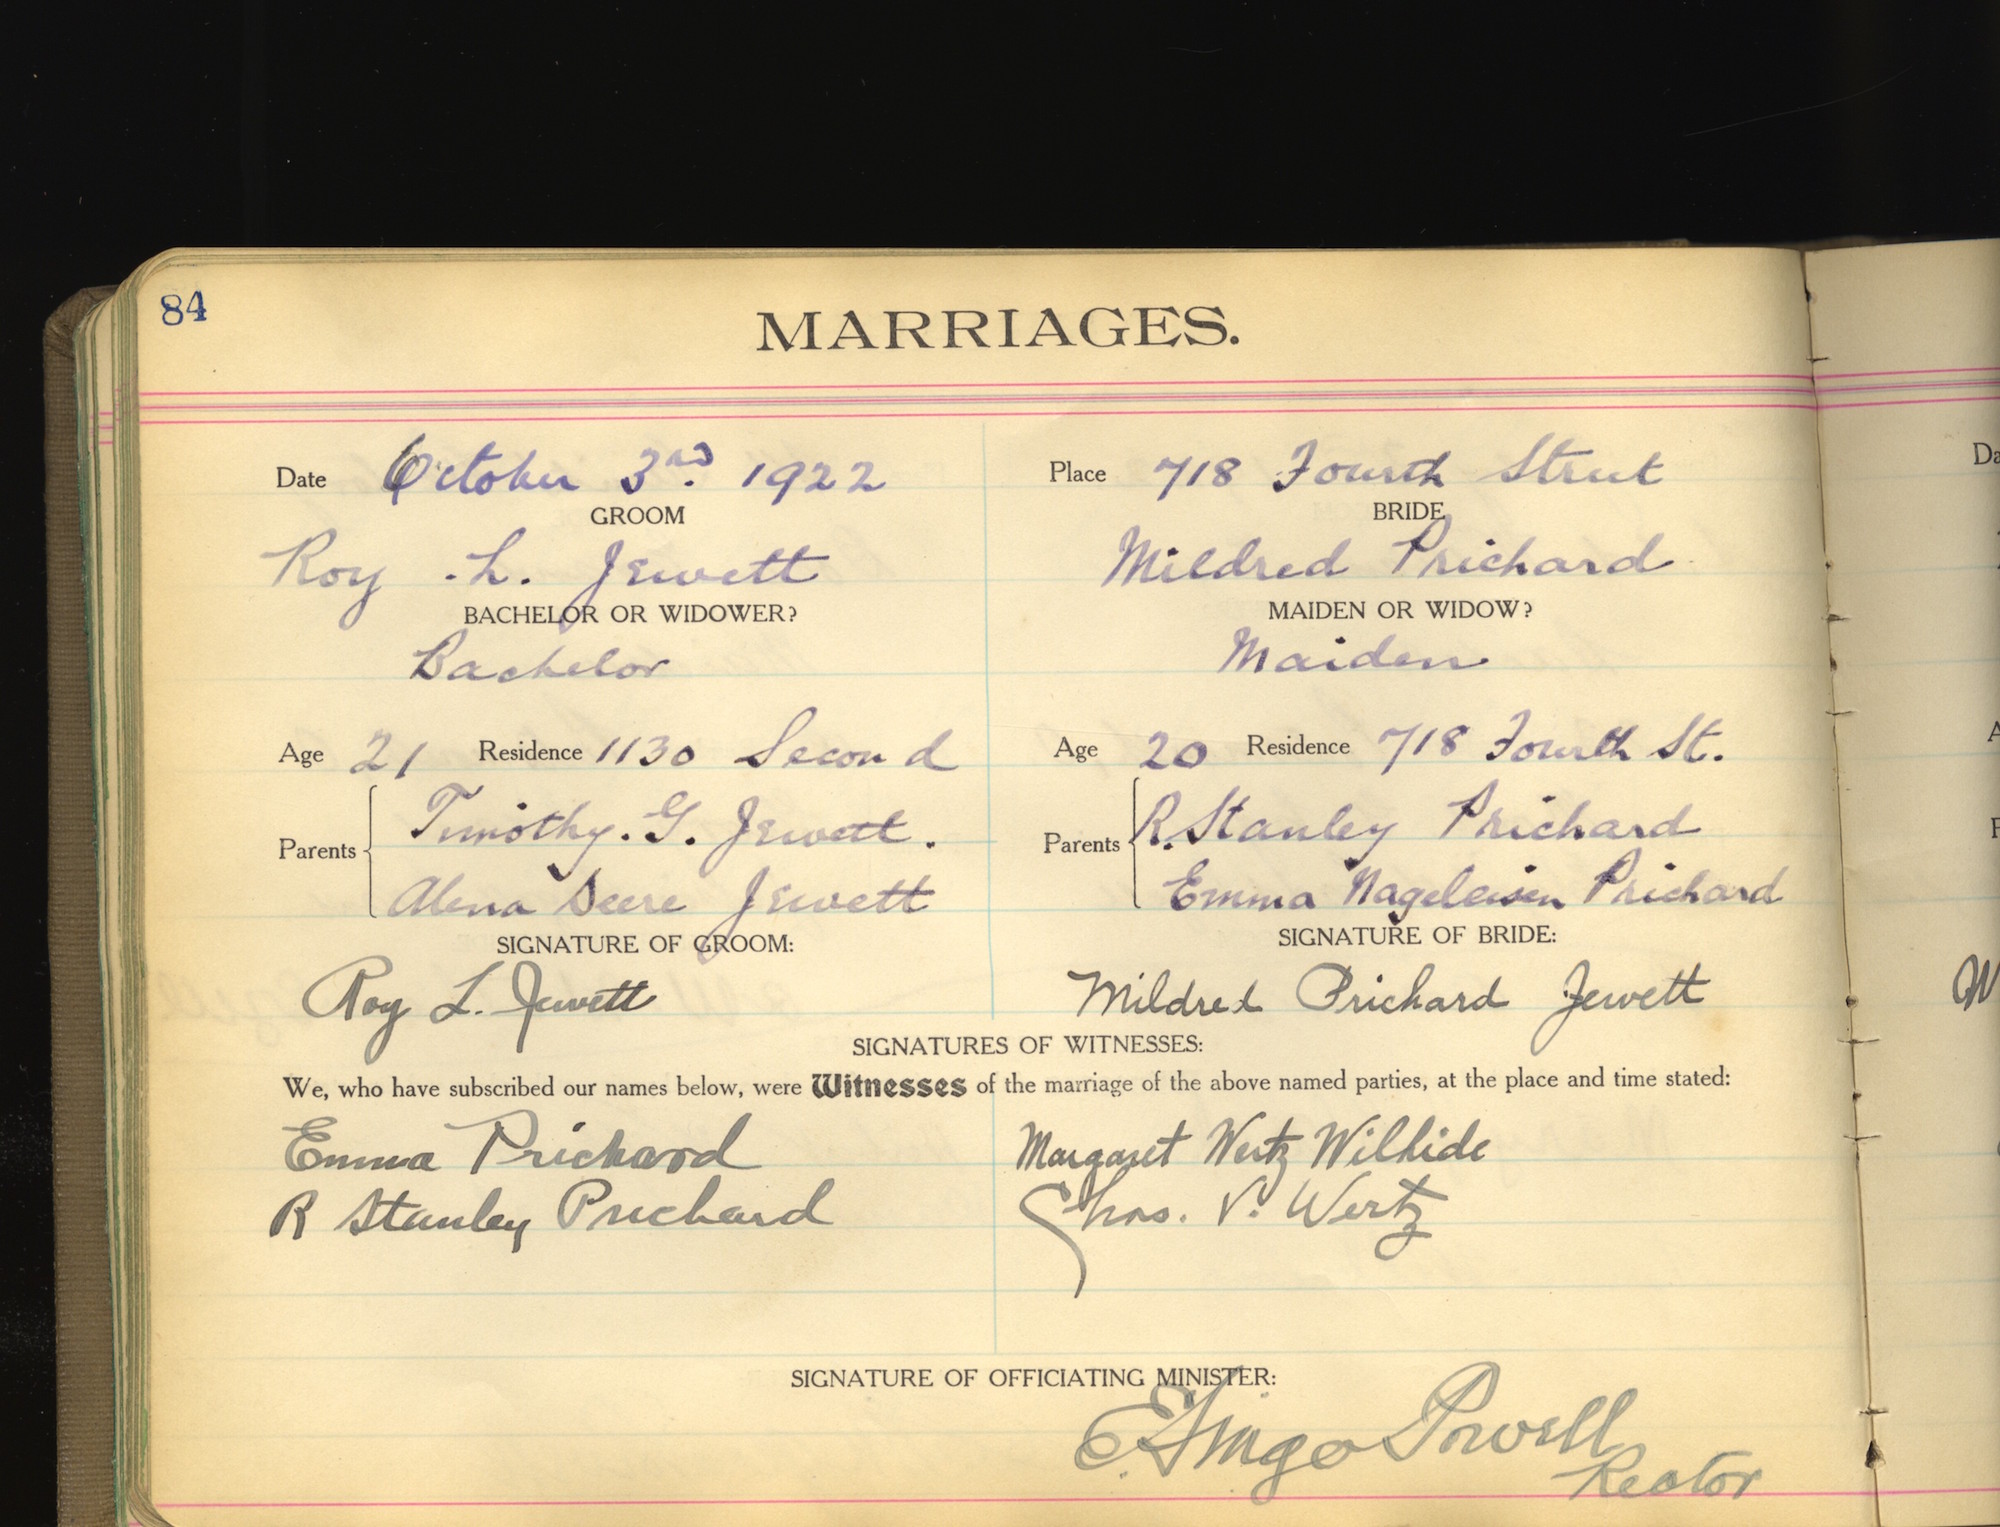 84
MARRIAGES.
Date October 3rd. 1922
Place 718 Fourth Street
GROOM
BRIDE
Roy L. Jewett
Mildred Prichard
BACHELOR OR WIDOWER?
MAIDEN OR WIDOW?
Bachelor
Maiden
Age 21 Residence 1130 Second
Age 20 Residence 718 Fourth St.
Parents
Timothy. G. Jewett.
Alena Deere Jewett
Parents
R. Stanley Prichard
Emma Nageleisen Prichard
SIGNATURE OF GROOM:
SIGNATURE OF BRIDE:
Roy L. Jewett
Mildred Prichard Jewett
SIGNATURES OF WITNESSES:
We, who have subscribed our names below, were Witnesses of the marriage of the above named parties, at the place and time stated:
Emma Prichard
Margaret Wertz Wilhide
R Stanley Prichard
Chas. V. Wertz
SIGNATURE OF OFFICIATING MINISTER:
Powell
Rector
Da